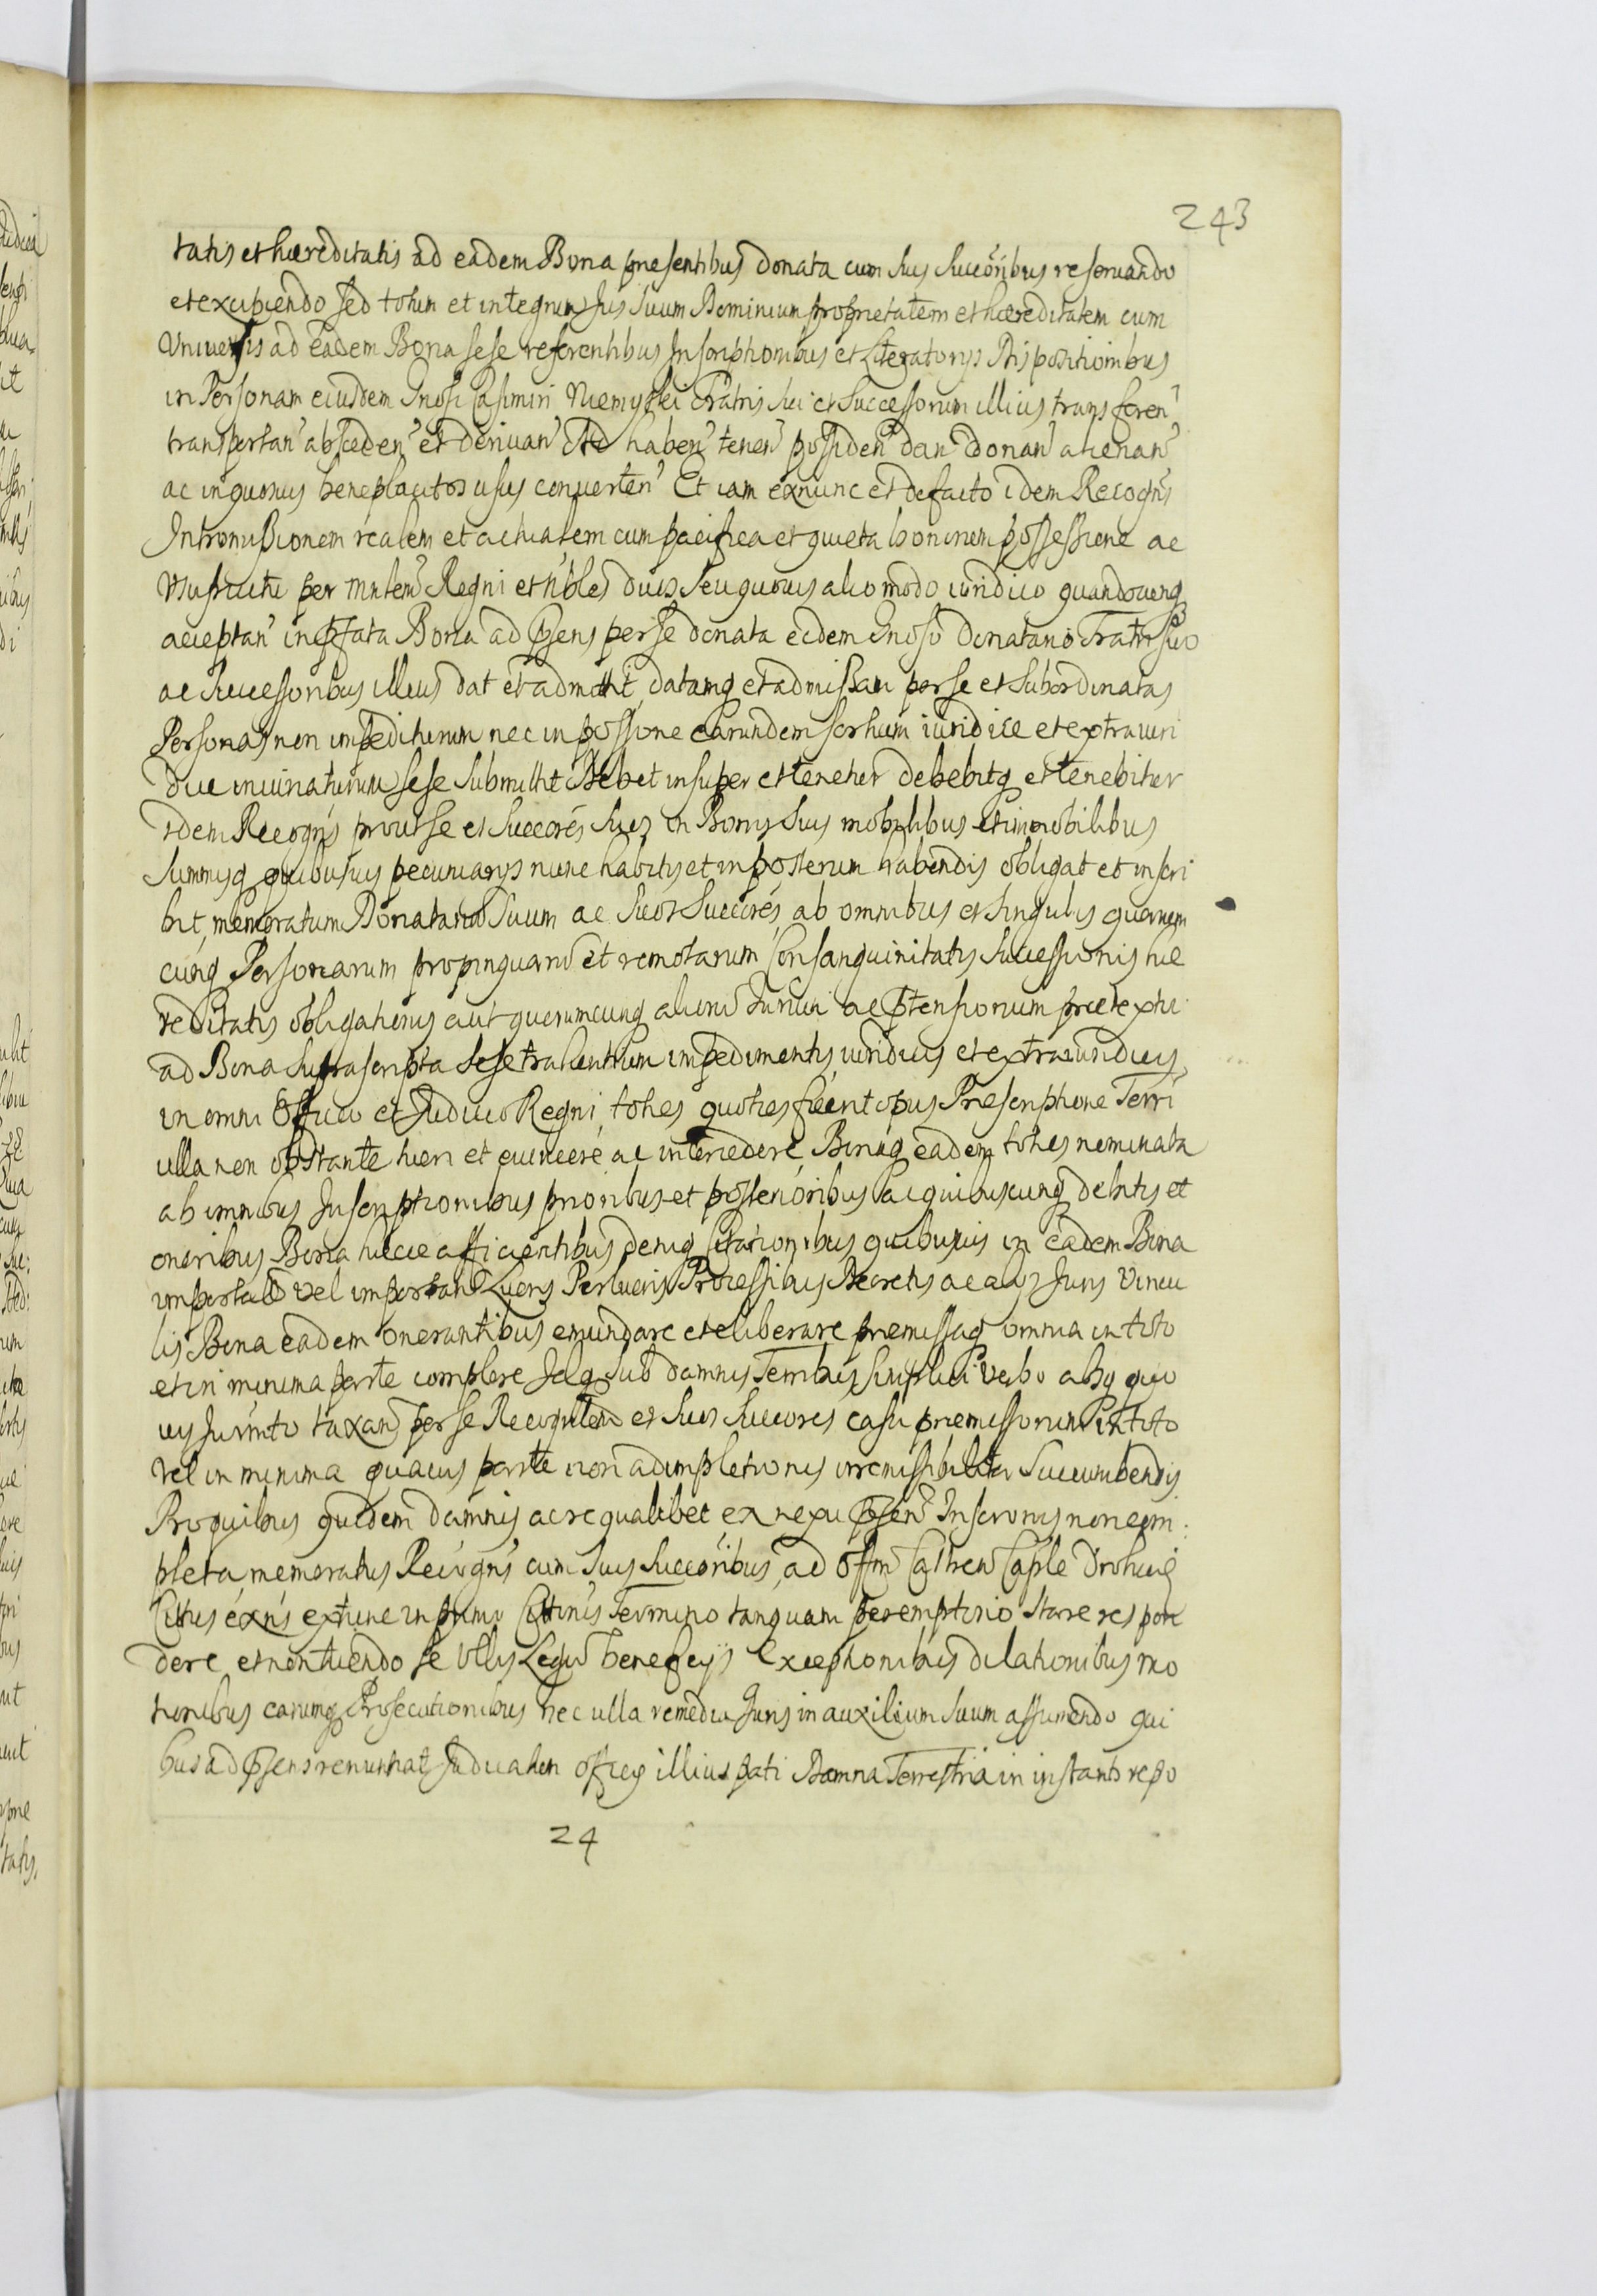 243
tatis et hæreditatis ad eadem Bona presentibus donata cum suis succoribus reservando
et excipiendo sed totum et integrum Jus suum Dominium proprietatem et hæreditatem cum
Universis ad eadem Bona sese referentibus Inscriptionibus et Literatorys Dispositionibus
in Personam eiusdem Gnosi Casimiri Niemyski Fratris sui et Successorum illius transferen
transportan absceden et derivan Ad haben tenen possiden dan donan alienan
ac in quosvis beneplacitos usus converten Et iam exnunc et defacto idem Recogns
Intromissionem realem et actualem cum pacifica et quieta bonorum possessione ac
Usufructu per Mnlem Regni et Nbles duos seu quovis alio modo iuridico quandocunq
acceptan in pfata Bona ad psens per se donata eidem Gnoso Donatario Fratri suo
ac Successoribus illius dat et admittit, datamq et admissam per se et subordinatas
Personas non impediturum nec in possione earundem sortium iuridice et extraiuri
dice iniuriaturum sese submittit Debet insuper et tenetur debebitq et tenebitur
idem Recogns prout se et Succores suos in Bonis suis mobilibus et immobilibus
summisq quibusvis pecuniarys nunc habitis et in posterum habendis obligat et inscri
bit, memoratum Donatariu suum ac suos Succores, ab omnibus et singulis quarum
cunq Personarum propinquaru et remotarum Consanguinitatis Successionis hæ
reditatis obligationis aut quorumcunq alioru Jurium ac ptensionum prætextu
ad Bona suprascripta sese trahentium impedimentis, iuridicis et extraiuridicis,
in omni Officio et Judicio Regni, toties quoties fuerit opus Prescriptione Terri
ulla non obstante tueri et evincere ac intercedere, Bonaq eadem toties nominata
ab omnibus Inscriptionibus prioribus et posterioribus ac quibuscunq debitis et
oneribus Bona hæcce afficientibus deniq Citationibus quibusvis in eadem Bona
importatis vel importand Lucris Perlucris Processibus Decretis ac alys Juris Vincu
lis Bona eadem onerantibus emundare et eliberare premissaq omnia in toto
et in minima parte complere Idq sub damnis Terribus simplici verbo absq quo
vis Jurmto taxand per se Recognitem et suos succores casu premissorum in toto
vel in minima quavis parte non adimpletionis irremissibiliter Succumbendis
Pro quibus quidem damnis ac re qualibet ex nexu psen Inscronis non com:
pleta, memoratus Recogns cum suis succoribus, ad Offm Cathren Caple Drohicé
Cittus exns extunc in primo Cittinis Termino tanquam peremptorio stare respon
dere et non tuendo se Ullis Legu beneficys Exceptionibus dilationibus mo
tionibus earumq Prosecutionibus nec ulla remedia Juris in auxilium suum assumendo qui
bus ad psens renuntiat, Judicatum officy illius pati Damna Terrestria in instanti repo
24